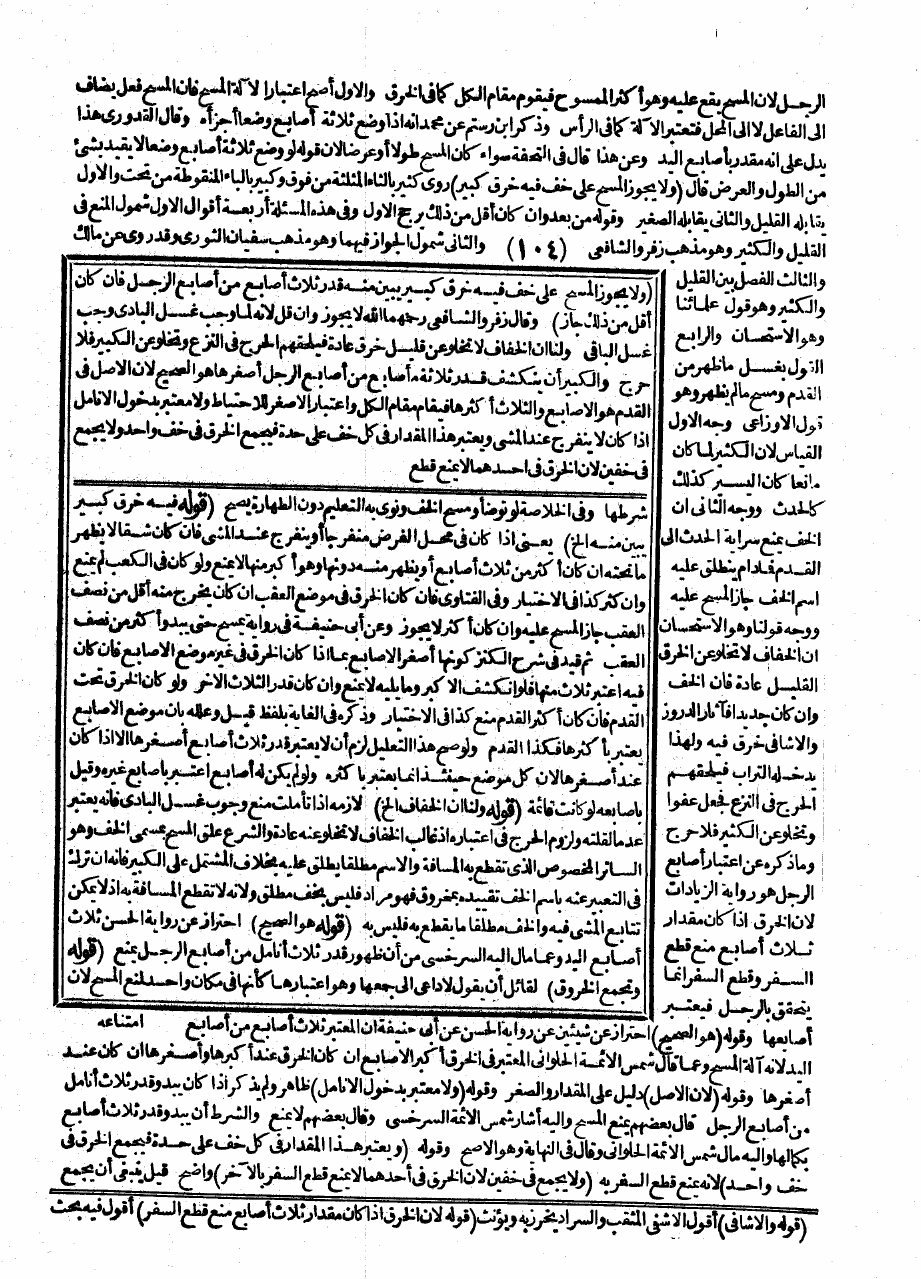 الرجل لان المسح يقع عليه وهو أكثر الممسوح فيقوم مقام الكل كما فى الخرق والاول أصح اعتبارا لآلة المسح فان المسح فعل يضاف
الى الفاعل لا الى المحل فتعتبر الآلة كما فى الرأس وذكر ابن رستم عن محمد انه اذا وضع ثلاثة أصابع وضعا أجزأه وقال القدورى هذا
يدل على انه مقدر بأصابع اليد وعن هذا قال فى التحفة سواء كان المسح طولا أو عرضا لان قوله لو وضع ثلاثة أصابع وضعا لا يقيد بشئ
من الطول والعرض قال (ولا يجوز المسح على خف فيه خرق كبير) روى كثير بالثاء المثلثة من فوق وكبير بالباء المنقوطة من تحت والاول
يقابله القليل والثانى يقابله الصغير وقوله من بعد وان كان أقل من ذلك يرجح الاول وفى هذه المسئلة أربعة أقوال الاول شمول المنع فى
القليل والكثير وهو مذهب زفر والشافعى (١٠٤) والثانى شمول الجواز فيهما وهو مذهب سفيان الثورى وقد روى عن مالك
والثالث الفصل بين القليل
والكثير وهو قول علمائنا
وهو الاستحسان والرابع
القول بغسل ما ظهر من
القدم ومسح ما لم يظهر وهو
قول الاوزاعى وجه الاول
القياس لان الكثير لما كان
مانعا كان اليسير كذلك
كالحدث ووجه الثانى ان
الخف يمنع سراية الحدث الى
القدم فمادام ينطلق عليه
اسم الخف جاز المسح عليه
ووجه قولنا وهو الاستحسان
ان الخفاف لا تخلو عن الخرق
القليل عادة فان الخف
وان كان جديدا فآثار الدروز
والاشافى خرق فيه ولهذا
يدخله التراب فيلحقهم
الحرج فى النزع فجعل عفوا
وتخلو عن الكثير فلا حرج
وما ذكره عن اعتبار أصابع
الرجل هو رواية الزيادات
لان الخرق اذا كان مقدار
ثلاث أصابع منع قطع
السفر وقطع السفر انما
يتحقق بالرجل فيعتبر
(ولا يجوز المسح على خف فيه خرق كبير يبين منه قدر ثلاث أصابع من أصابع الرجل فان كان
أقل من ذلك جاز) وقال زفر والشافعى رحمهما الله لا يجوز وان قل لانه لما وجب غسل البادى وجب
غسل الباقى ولنا ان الخفاف لا تخلو عن قليل خرق عادة فيلحقهم الحرج فى النزع وتخلو عن الكبير فلا
حرج والكبير أن ينكشف قدر ثلاثة من أصابع الرجل أصغرها هو الصحيح لان الاصل فى
القدم هو الاصابع والثلاث أكثرها فيقام مقام الكل واعتبار الاصغر للاحتياط ولا معتبر بدخول الانامل
اذا كان لا ينفرج عند المشى ويعتبر هذا المقدار فى كل خف على حدة فيجمع الخرق فى خف واحد ولا يجمع
فى خفين لان الخرق فى احدهما لا يمنع قطع
شرطها وفى الخلاصة لو توضأ ومسح الخف ونوى به التعليم دون الطهارة يصح (قوله فيه خرق كبير
يبين منه الخ) يعنى اذا كان فى محل الفرض منفرجا أو ينفرج عند المشى فان كان شقا لا يظهر
ما تحته ان كان أكثر من ثلاث أصابع أو يظهر منه دونها وهو أكبر منها لا يمنع ولو كان فى الكعب لم يمنع
وان كثر كذا فى الاختيار وفى الفتاوى فان كان الخرق فى موضع العقب ان كان يخرج منه أقل من نصف
العقب جاز المسح عليه وان كان أكثر لا يجوز وعن أبى حنيفة فى رواية يمسح حتى يبدو أكثر من نصف
العقب ثم قيد فى شرح الكنز كونها أصغر الاصابع بما اذا كان الخرق فى غير موضع الاصابع فان كان
فيه اعتبر ثلاث منها فلو انكشف الاكبر وما يليه لا يمنع وان كان قدر الثلاث الاخر ولو كان الخرق تحت
القدم فان كان أكثر القدم منع كذا فى الاختيار وذكره فى الغاية بلفظ قيل وعلله بان موضع الاصابع
يعتبر بأكثرها فكذا القدم ولو صح هذا التعليل لزم أن لا يعتبر قدر ثلاث أصابع أصغرها الا اذا كان
عند أصغرها لان كل موضع حينئذ انما يعتبر بأكثره ولو لم يكن له أصابع اعتبر بأصابع غيره وقيل
باصابعه لو كانت قائمة (قوله ولنا ان الخفاف الخ) لازمه اذا تأملت منع وجوب غسل البادى فانه يعتبر
عدما لقلته ولزوم الحرج فى اعتباره اذ غالب الخفاف لا تخلو عنه عادة والشرع علق المسح بمسمى الخف وهو
الساتر المخصوص الذى تقطع به المسافة والاسم مطلقا يطلق عليه بخلاف المشتمل على الكبير فانه ان ترك
فى التعبير عنه باسم الخف تقييده بمخروق فهو مراد فليس بخف مطلق ولانه لا تقطع المسافة به اذ لا يمكن
تتابع المشى فيه والخف مطلقا ما يقطع به فليس به (قوله هو الصحيح) احتراز عن رواية الحسن ثلاث
أصابع اليد وعما مال اليه السرخسى من أن ظهور قدر ثلاث أنامل من أصابع الرجل يمنع (قوله
وتجمع الخروق) لقائل أن يقول لا داعى الى جمعها وهو اعتبارها كأنها فى مكان واحد لمنع المسح لان
امتناعه
أصابعها وقوله (هو الصحيح) احتراز عن شيئين عن رواية الحسن عن أبى حنيفة ان المعتبر ثلاث أصابع من أصابع
اليد لانه آلة المسح وعما قال شمس الائمة الحلوانى المعتبر فى الخرق أكبر الاصابع ان كان الخرق عند أكبرها وأصغرها ان كان عند
أصغرها وقوله (لان الاصل) دليل على المقدار والصغر وقوله (ولا معتبر بدخول الانامل) ظاهر ولم يذكر اذا كان يبدو قدر ثلاث أنامل
من أصابع الرجل قال بعضهم يمنع المسح واليه أشار شمس الائمة السرخسى وقال بعضهم لا يمنع والشرط أن يبدو قدر ثلاث أصابع
بكمالها واليه مال شمس الائمة الحلوانى وقال فى النهاية وهو الاصح وقوله (ويعتبر هذا المقدار فى كل خف على حدة فيجمع الخرق فى
خف واحد) لانه يمنع قطع السفر به (ولا يجمع فى خفين لان الخرق فى أحدهما لا يمنع قطع السفر بالآخر) واضح قيل ينبغى أن يجمع
(قوله والاشافى) أقول الاشفى المثقب والسراد يخرز به ويؤنث (قوله لان الخرق اذا كان مقدار ثلاث أصابع منع قطع السفر) أقول فيه بحث